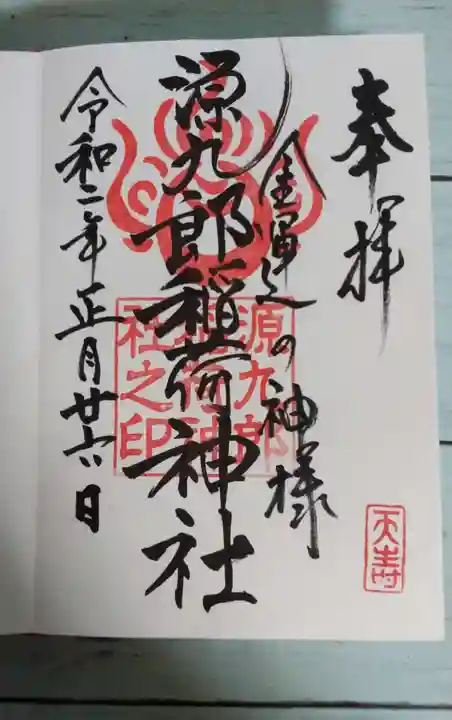 奉拝
金運の神様
源九郎稲荷神社
源九郎
稲荷神
社之印
令和二年正月廿六日